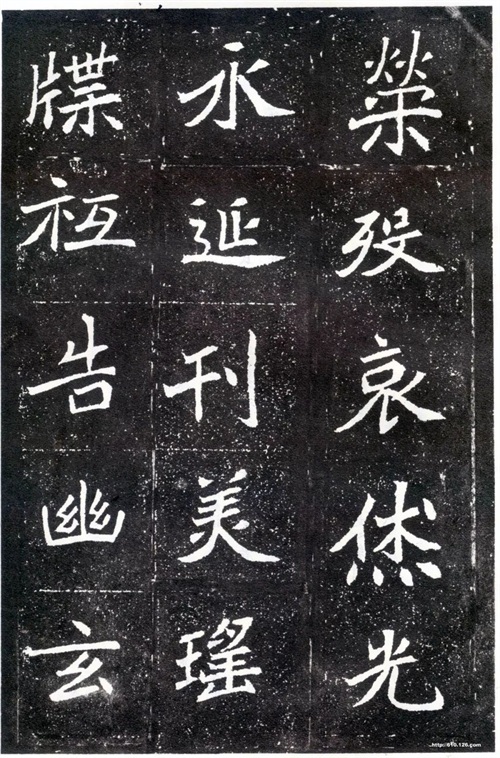 榮歿哀烋光
永延刊美瑤
牒祗告幽玄
http://610.126.com